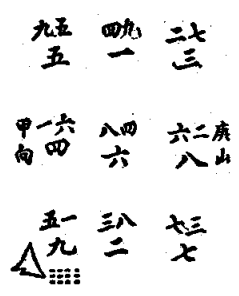 九五 四九 二七
五 一 三
甲向 一六 八四 六二 庚山
四 六 八
五一 三八 七三
九 二 七